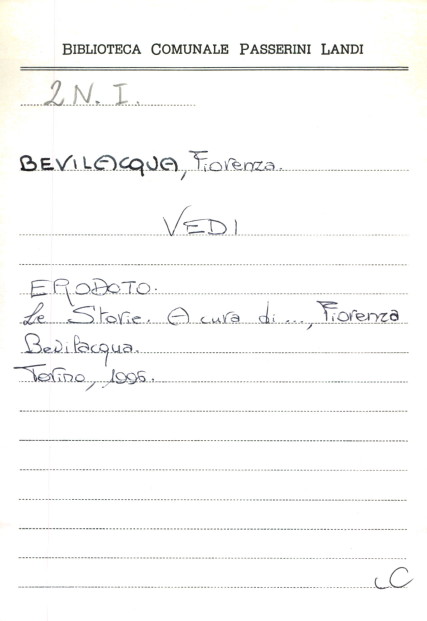 BIBLIOTECA COMUNALE PASSERINI LANDI
2 N. I.
BEVILACQUA, Fiorenza.
VEDI
ERODOTO.
Le Storie. A cura di ..., Fiorenza
Bevilacqua.
Torino, 1996.
C